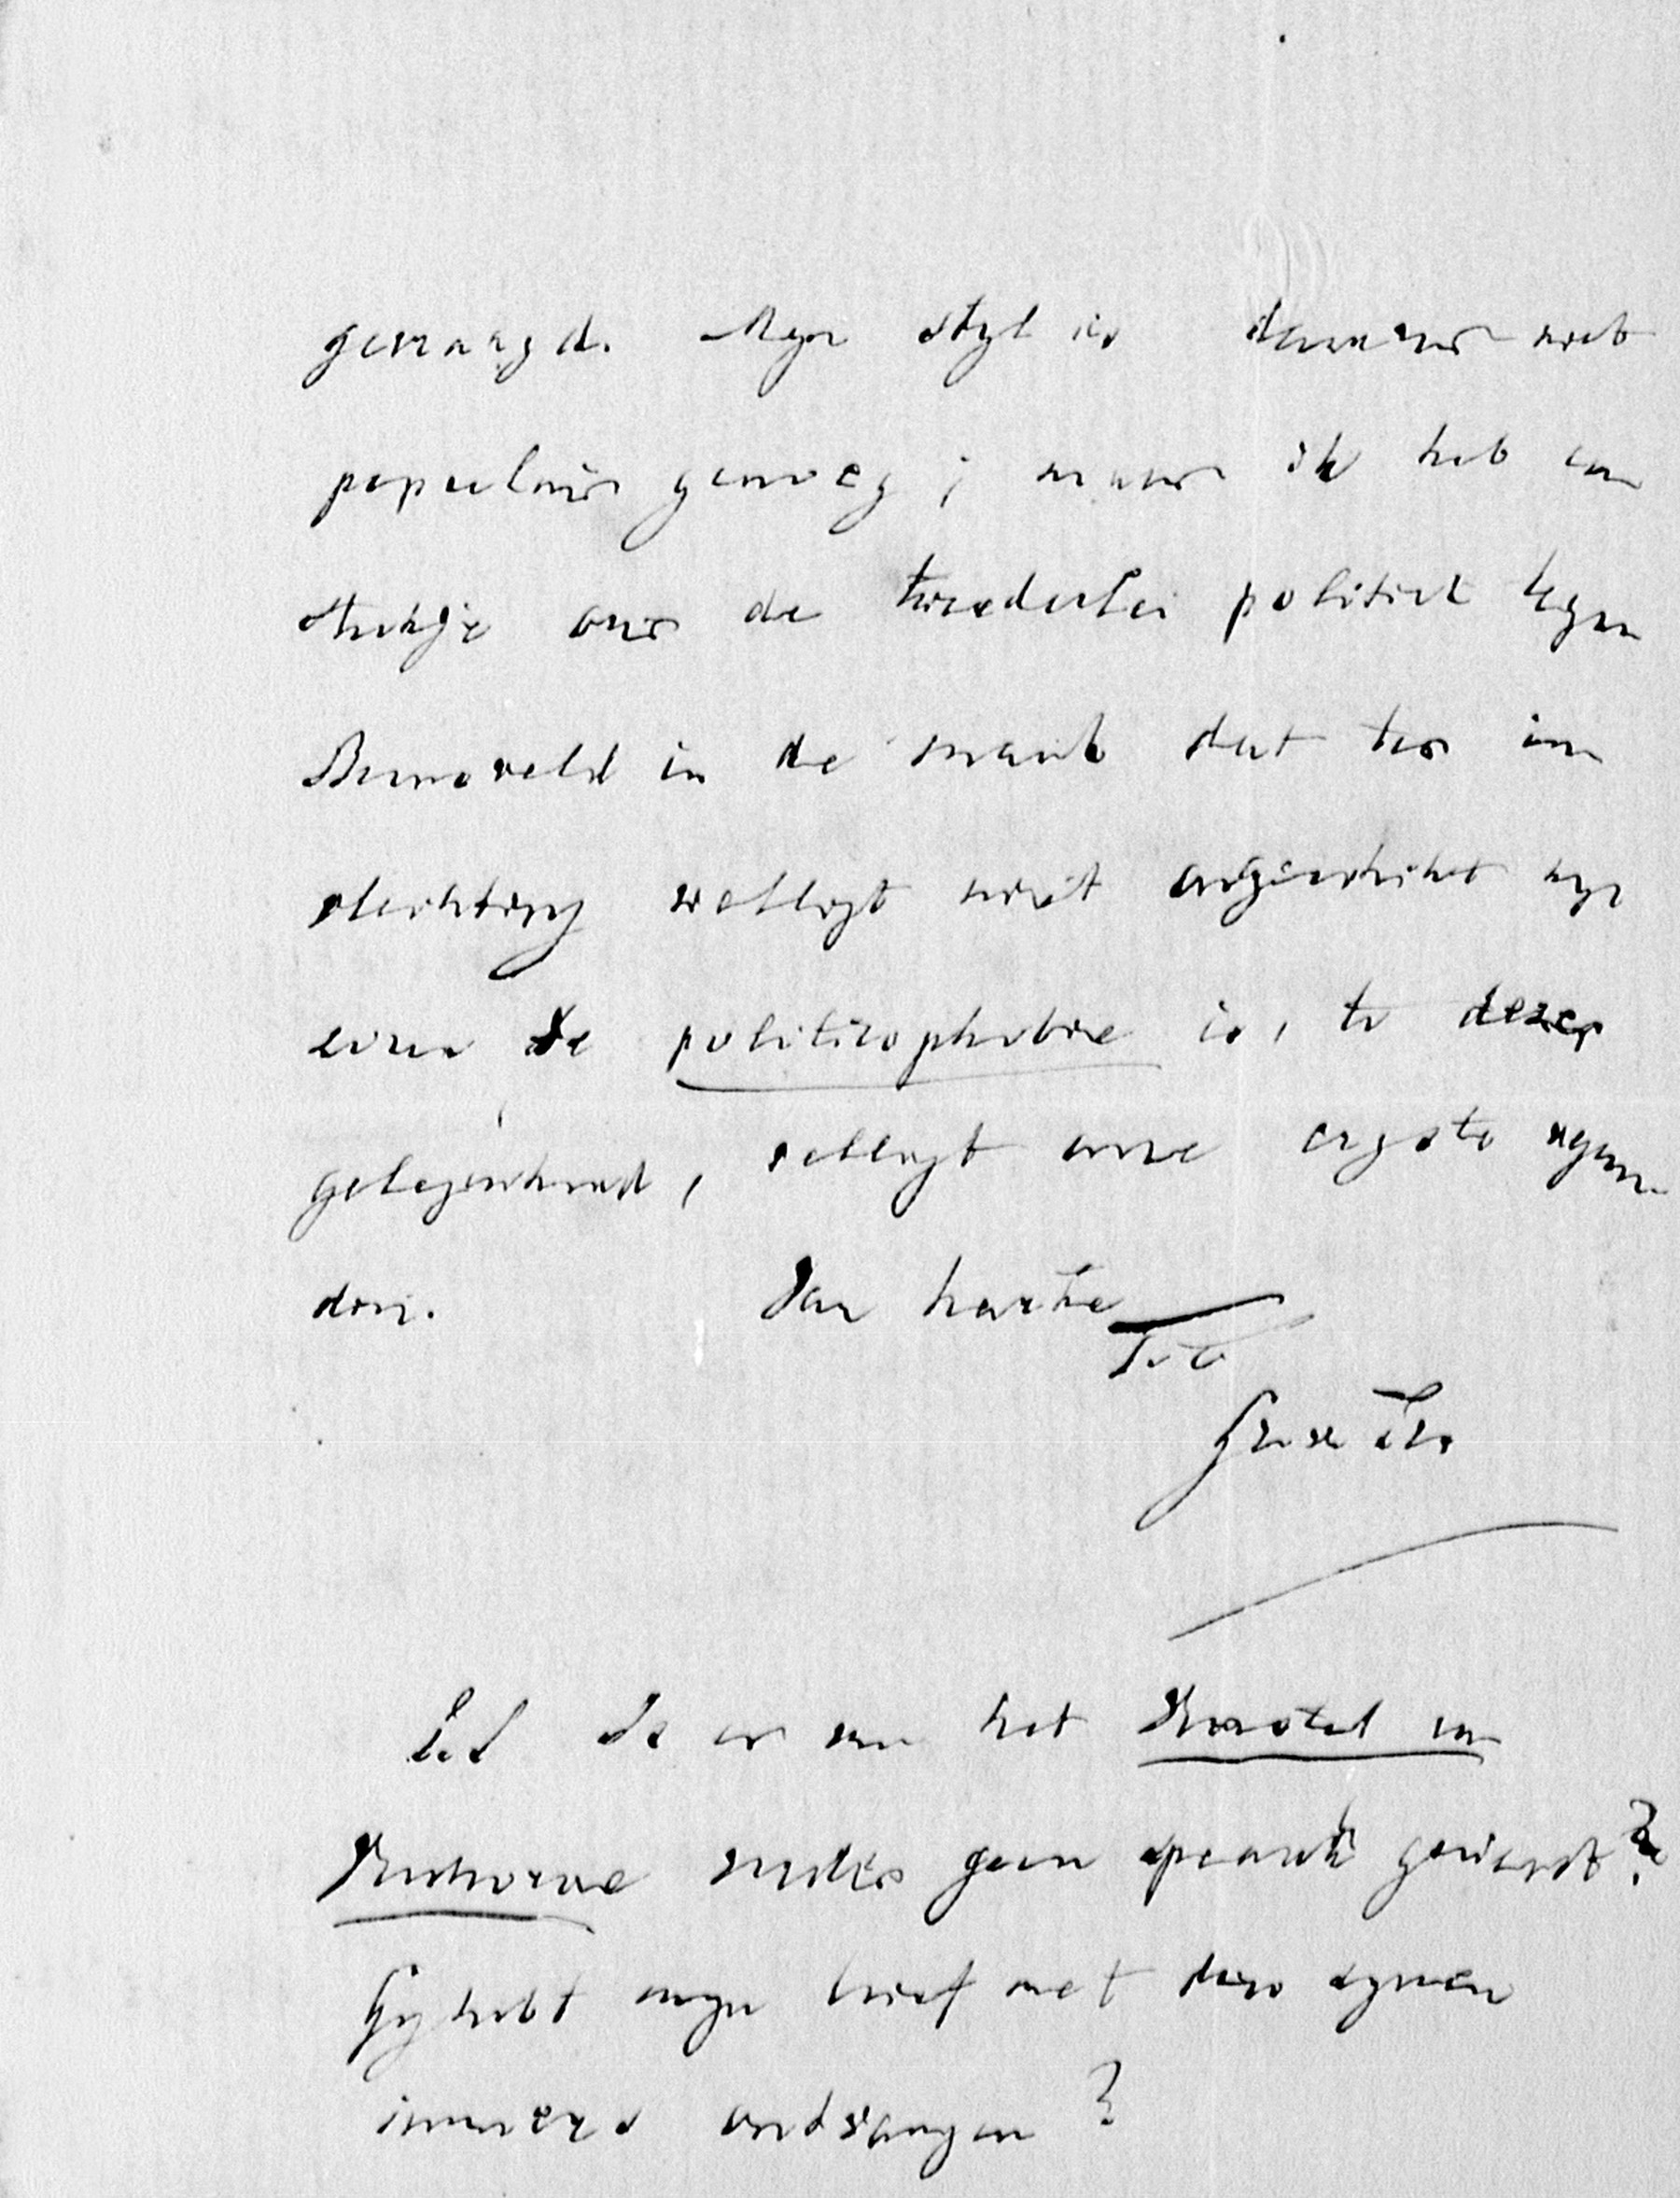 gevraagd. Myn styl is daarvoor niet
populair genoeg; maar ik heb een
stukje over de tweederlei politiek tegen
Barneveld in de maak dat ter in
plichting wellicht niet ongeschikt zyn
de politicophobie is, te dezer
gelegenheid, wellicht onze ergste vyan
din. Van harte
t.t.
Groen
P.S. Is er van het Kasteel van
verder geen spraak geweest?
Gy hebt myn brief met dien
immers ontvangen?